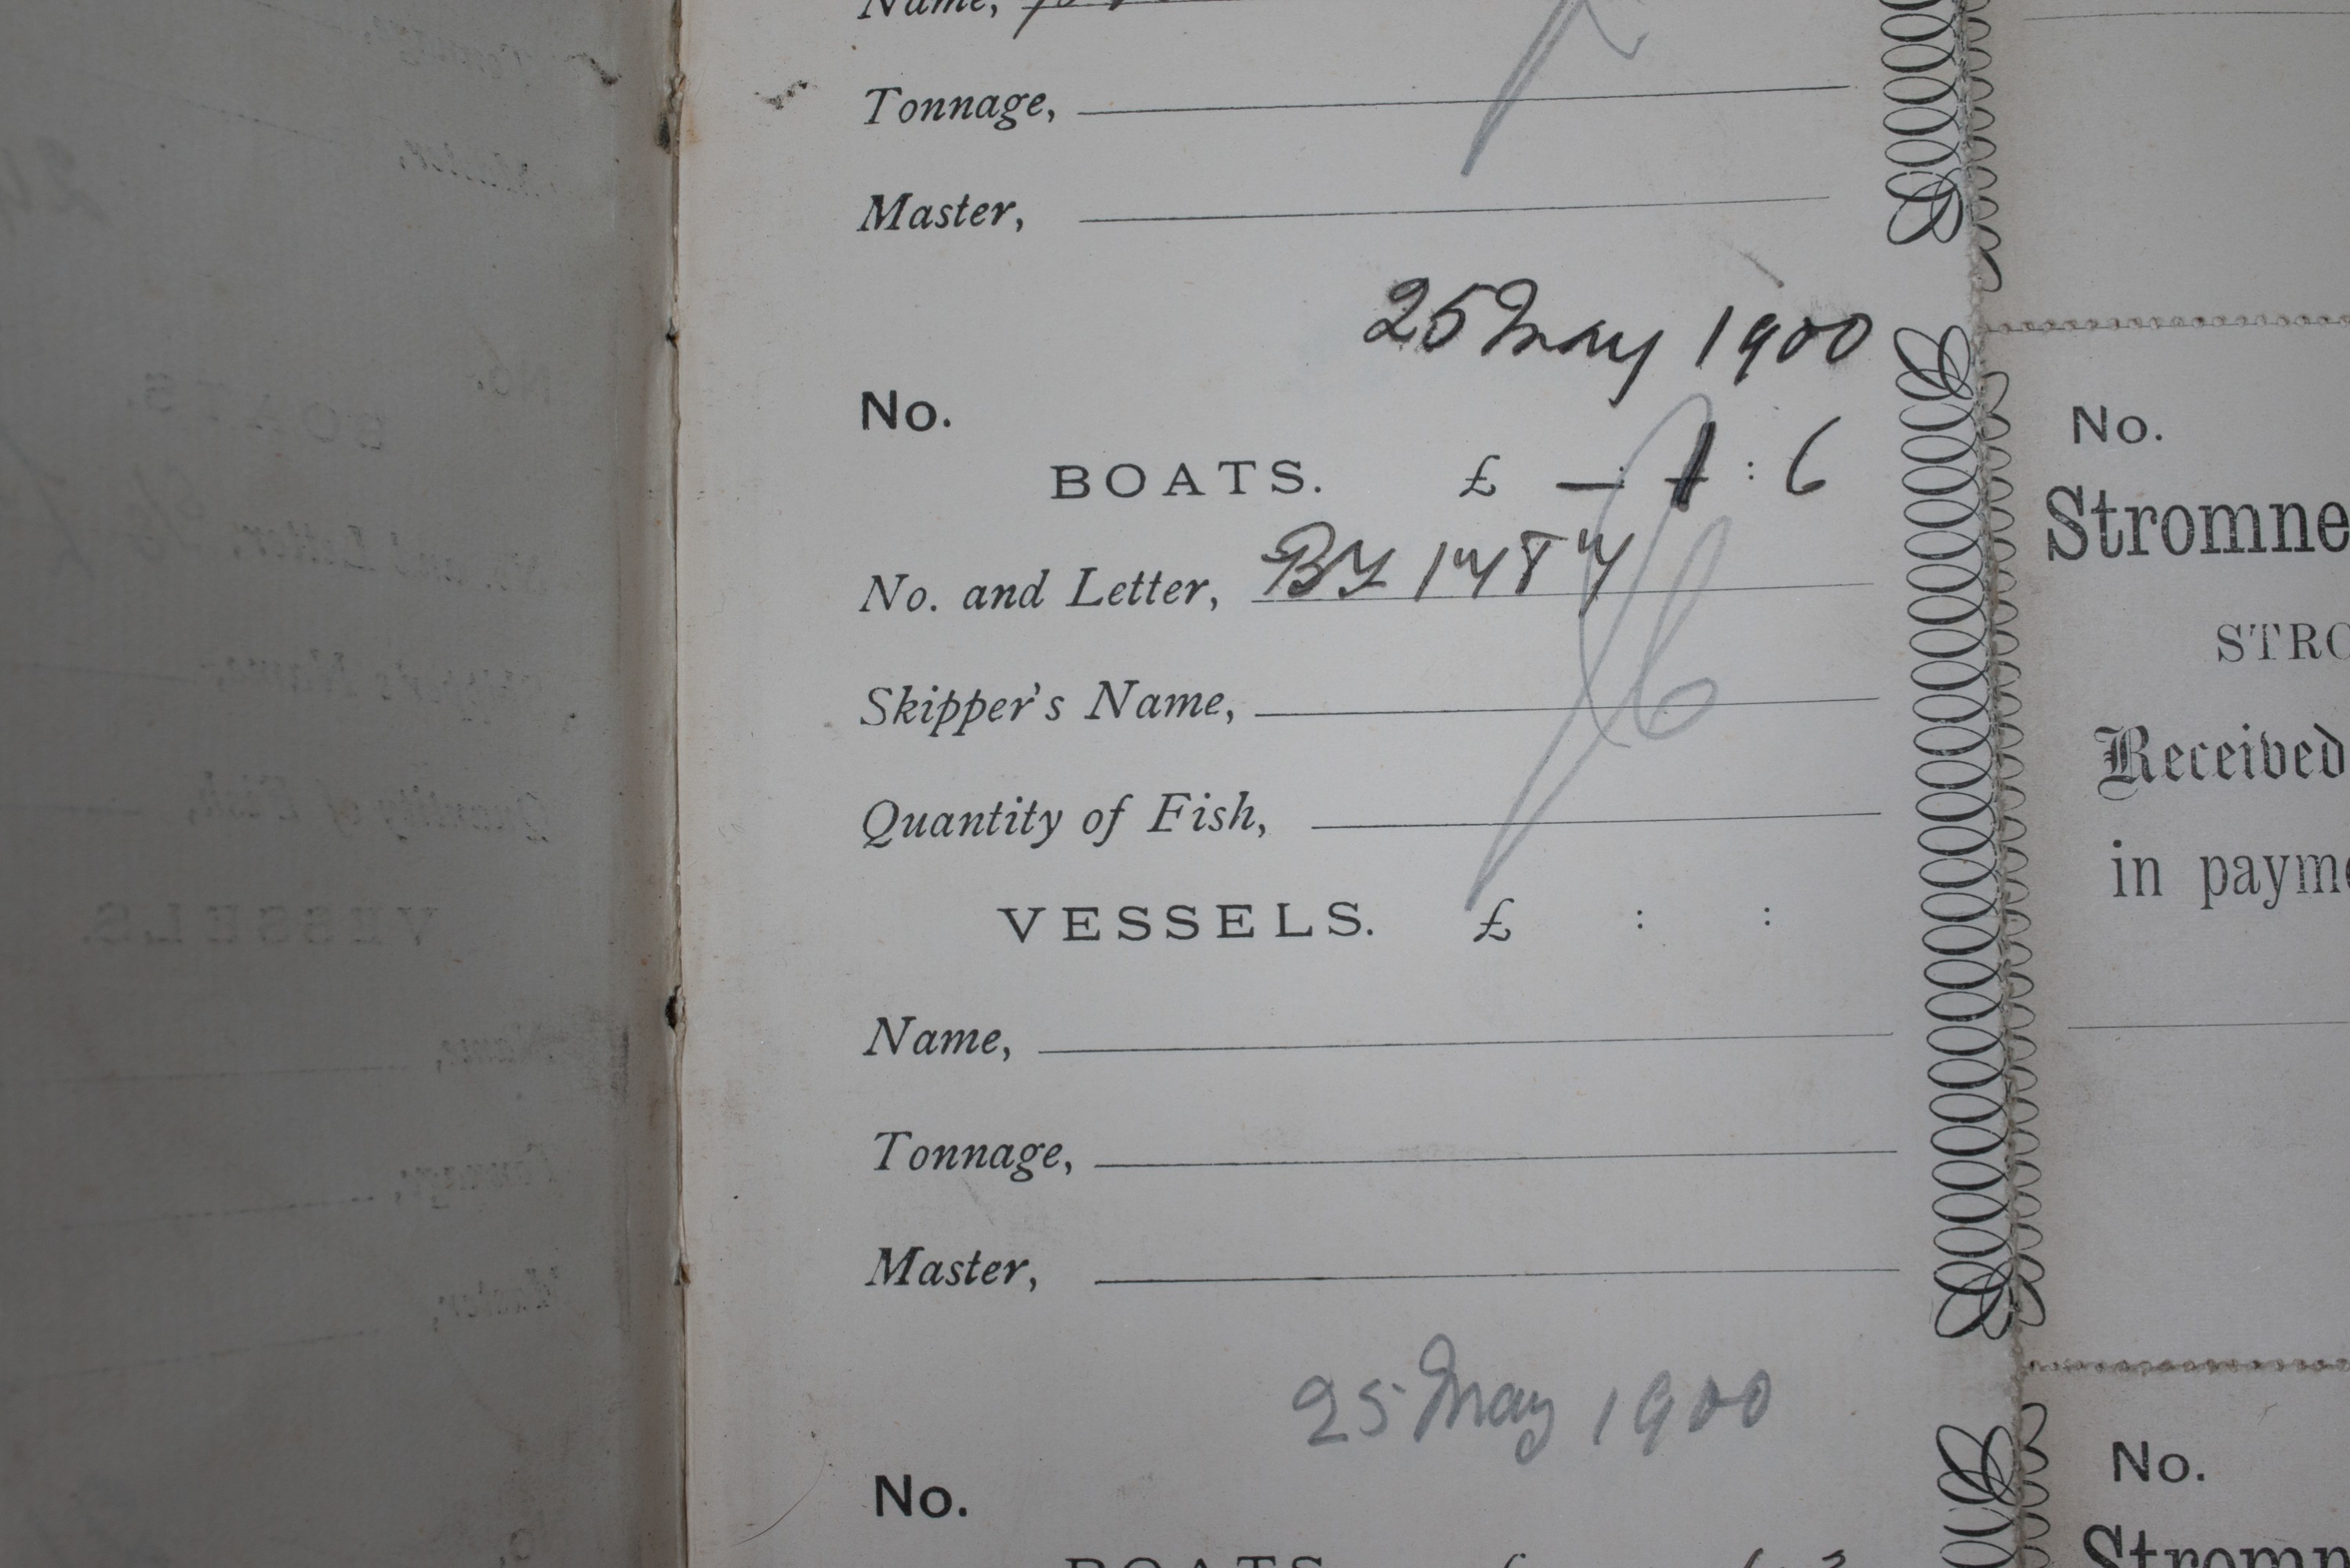 Name,
Tonnage,
Master,
25 May 1900
No.
BOATS. £ — : 1 : 6
No. and Letter, 
Skipper's Name,
Quantity of Fish,
VESSELS. £ : :
Name,
Tonnage,
Master,
25 May 1900
No.
BOATS. £
No.
Stromne
STRO
Received
in payme
No.
Stromn